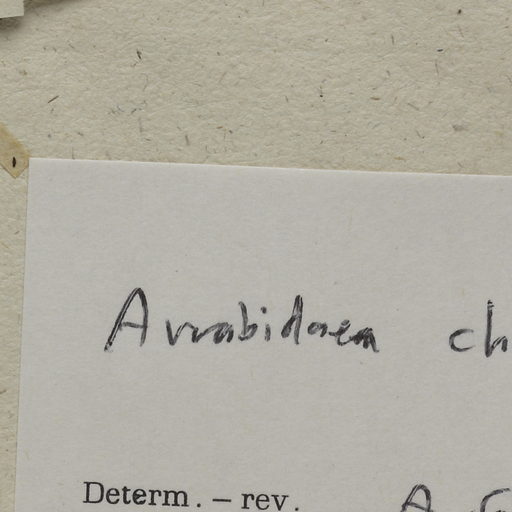 Arrabidaea ch
Determ. – rev. A. G